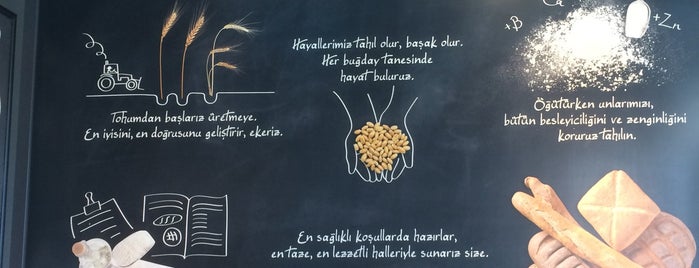 Tohumdan başlarız üretmeye.
En iyisini, en doğrusunu geliştirir, ekeriz.
Hayallerimiz tahıl olur, başak olur.
Her buğday tanesinde
hayat buluruz.
Ca
+B
+Zn
Öğütürken unlarımızı,
bütün besleyiciliğini ve zenginliğini
koruruz tahılın.
En sağlıklı koşullarda hazırlar,
en taze, en lezzetli halleriyle sunarız size.